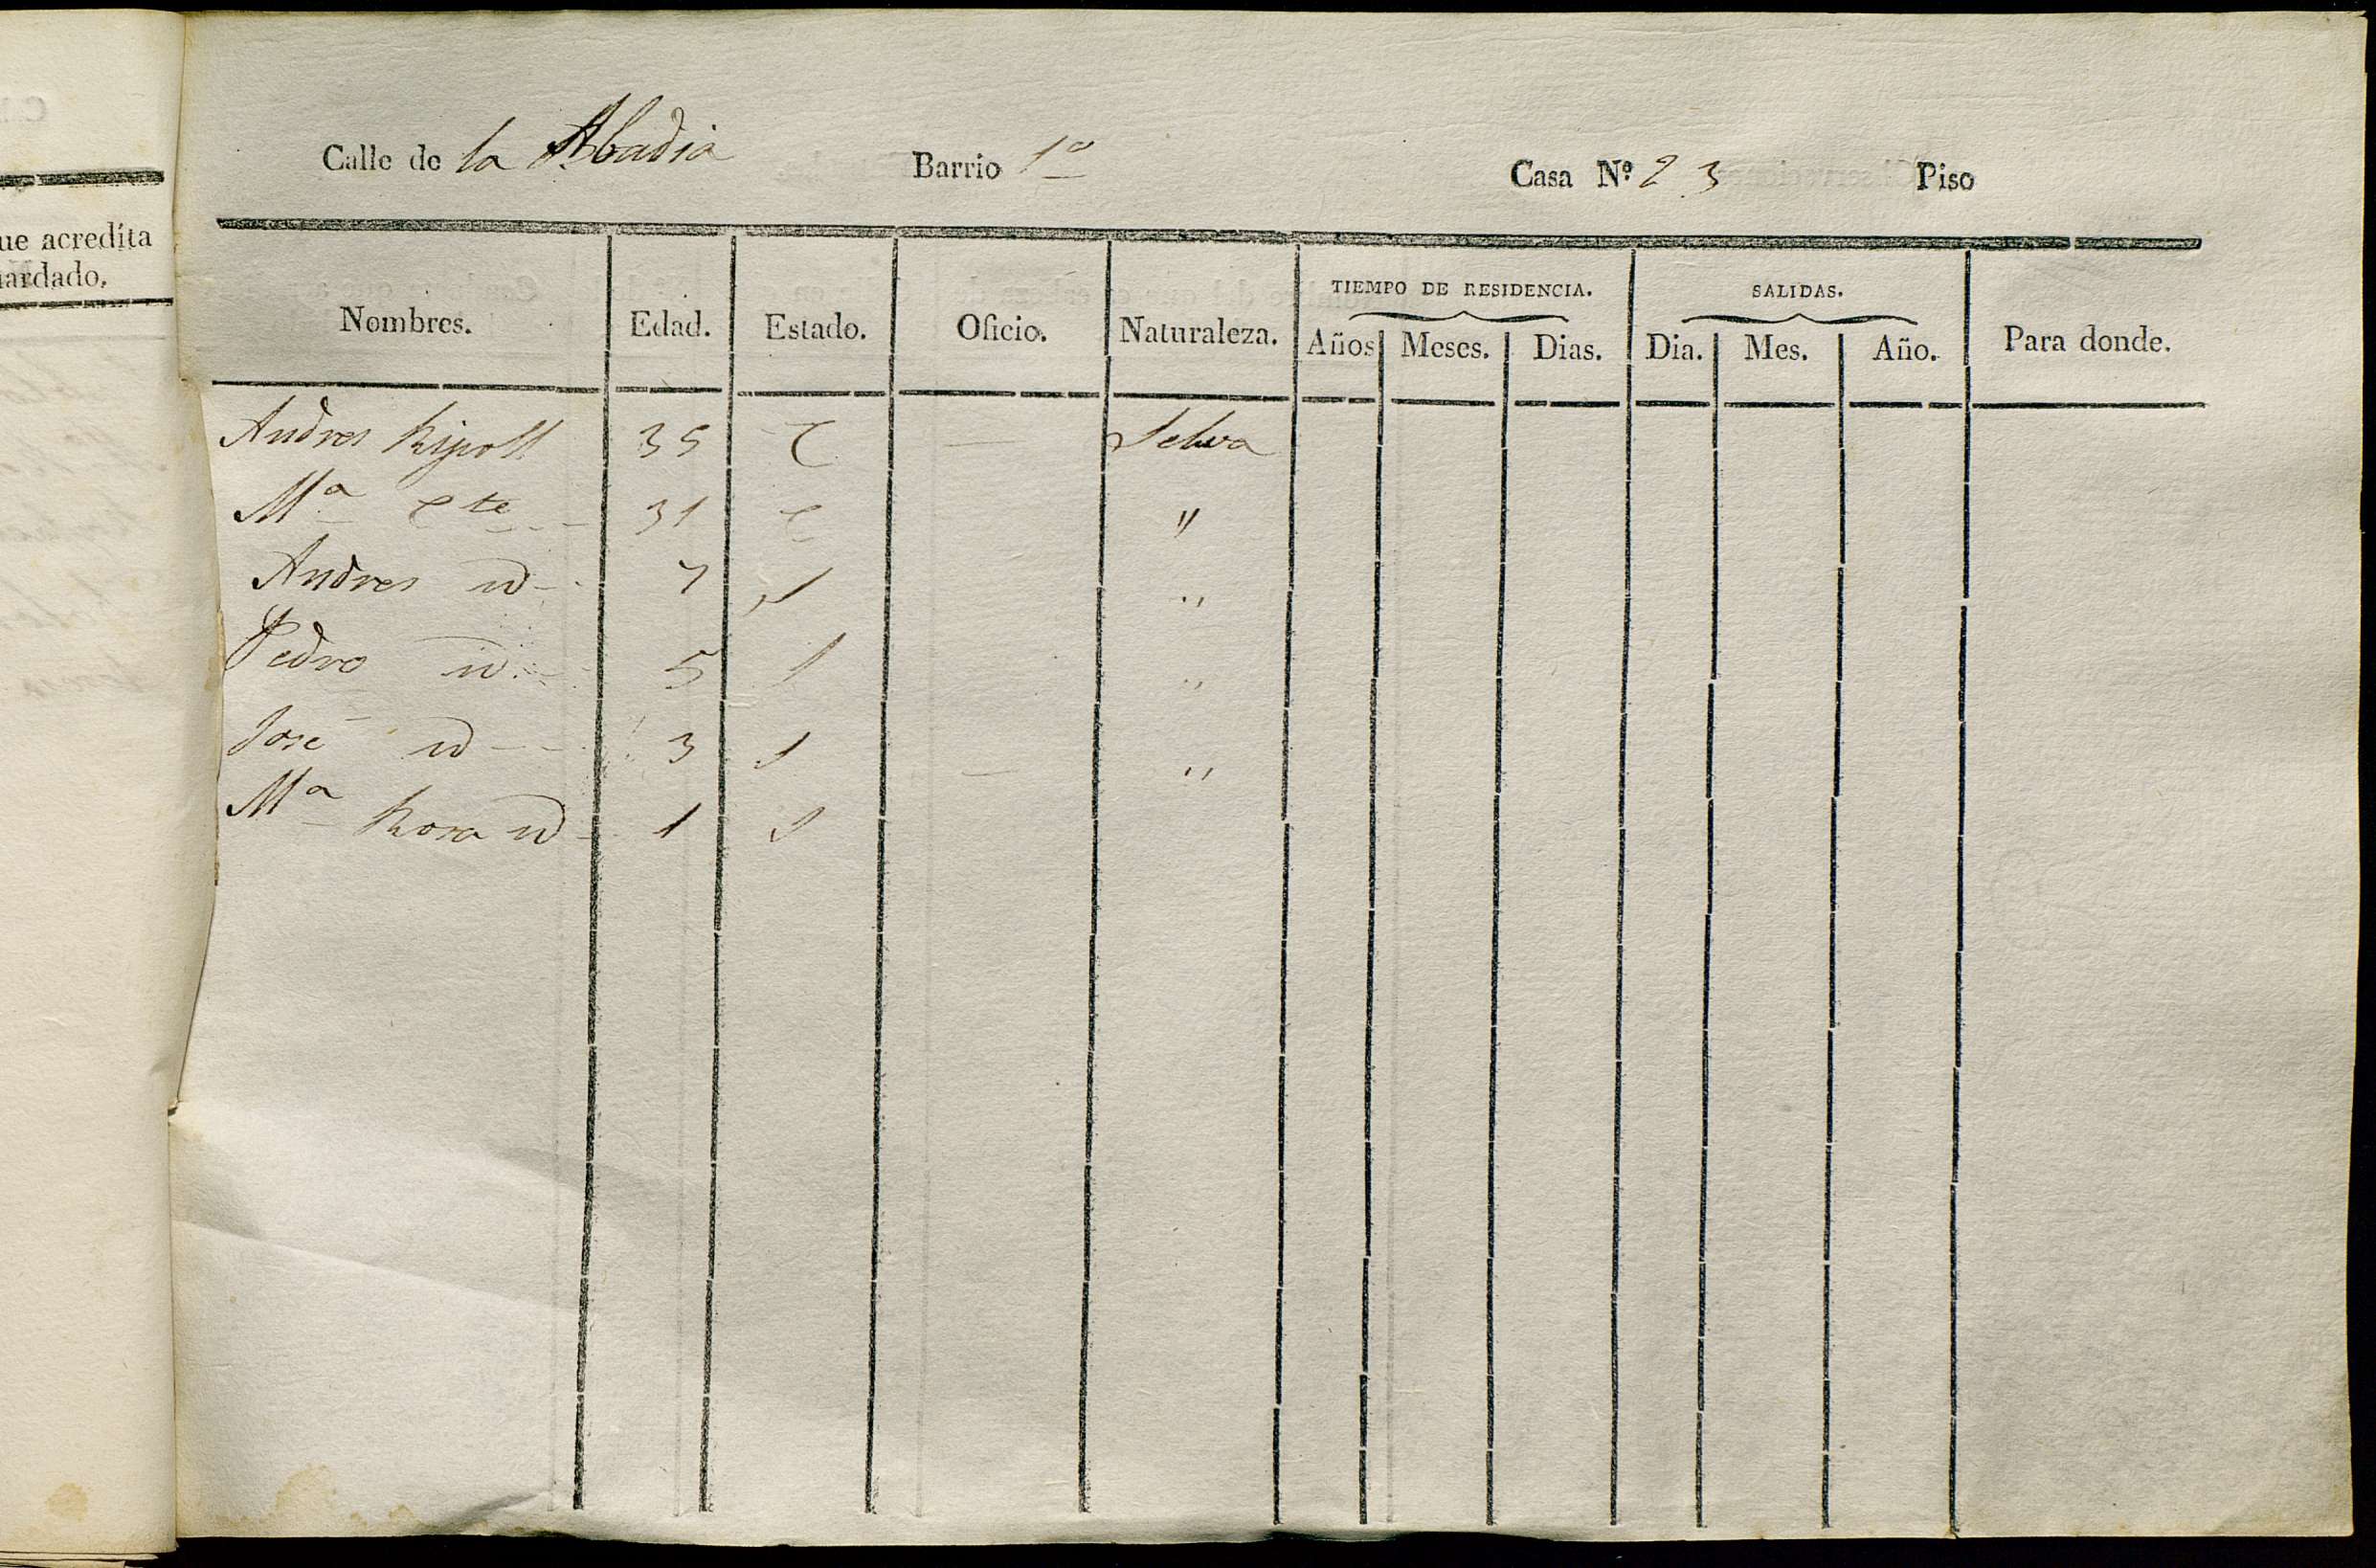 ue acredita
ardado.
Calle de la Abadia Barrio 1º Casa Nº 23 Piso
TIEMPO DE RESIDENCIA. SALIDAS.
Nombres. Edad. Estado. Oficio. Naturaleza. Años Meses. Dias. Dia. Mes. Año. Para donde.
Andres Ripoll 35 C — Selva
Mª Cte 31 C "
Andres id 7 S "
Pedro id 5 S "
José id 3 S — "
Mª Rosa id 1 S